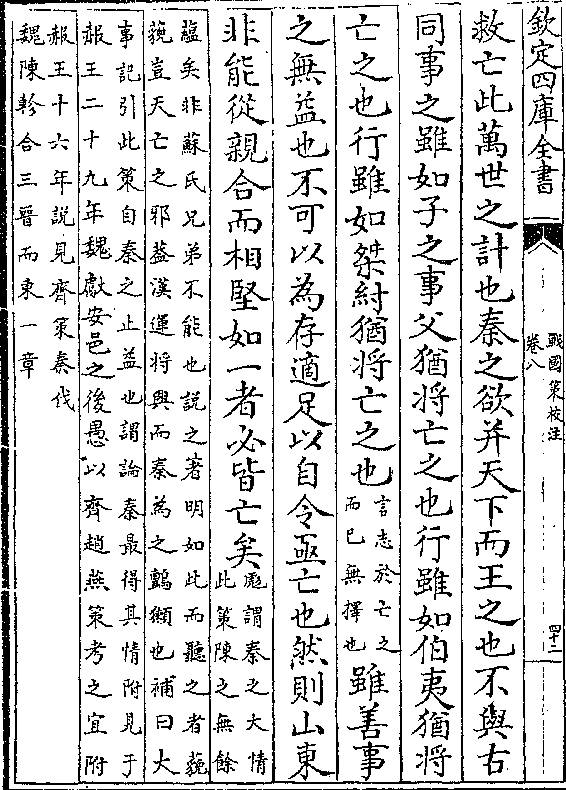 欽定四庫全書
戰國策校注
卷八
四十二
救亡此萬世之計也秦之欲并天下而王之也不與古
同事之雖如子之事父猶將亡之也行雖如伯夷猶將
亡之也行雖如桀紂猶將亡之也言志於亡之
而已無擇也雖善事
之無益也不可以為存適足以自令亟亡也然則山東
非能從親合而相堅如一者必皆亡矣彪謂秦之大情
此策陳之無餘
藴矣非蘇氏兄弟不能也説之著明如此而聽之者藐
藐豈天亡之邪葢漢運將興而秦為之鸇獺也補曰大
事記引此策自秦之止益也謂論秦最得其情附見于
赧王二十九年魏獻安邑之後愚以齊趙燕策考之宜附
赧王十六年説見齊策秦伐
魏陳軫合三晉而東一章